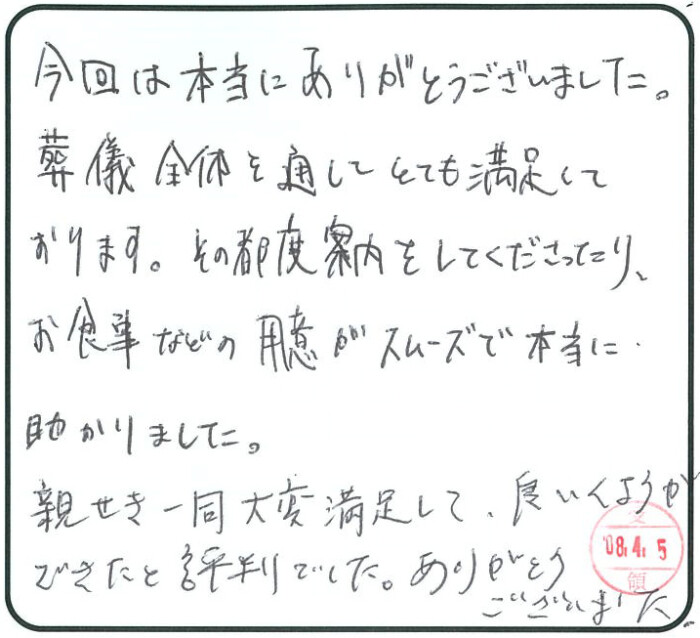 今回は本当にありがとうございました。
葬儀全体を通してとても満足して
おります。その都度案内をしてくださったり、
お食事などの用意がスムーズで本当に
助かりました。
親せき一同大変満足して、良いくようが
できたと評判でした。ありがとう
ございました
受
'08.4.5
領